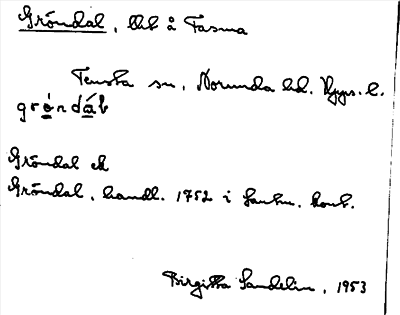 Gröndal, å Fasma
Tensta sn, Norunda hd. Upps. l.
Gröndal ek
Gröndal, handl. 1752 i lantm. kont.
Birgitta Sandelin, 1953